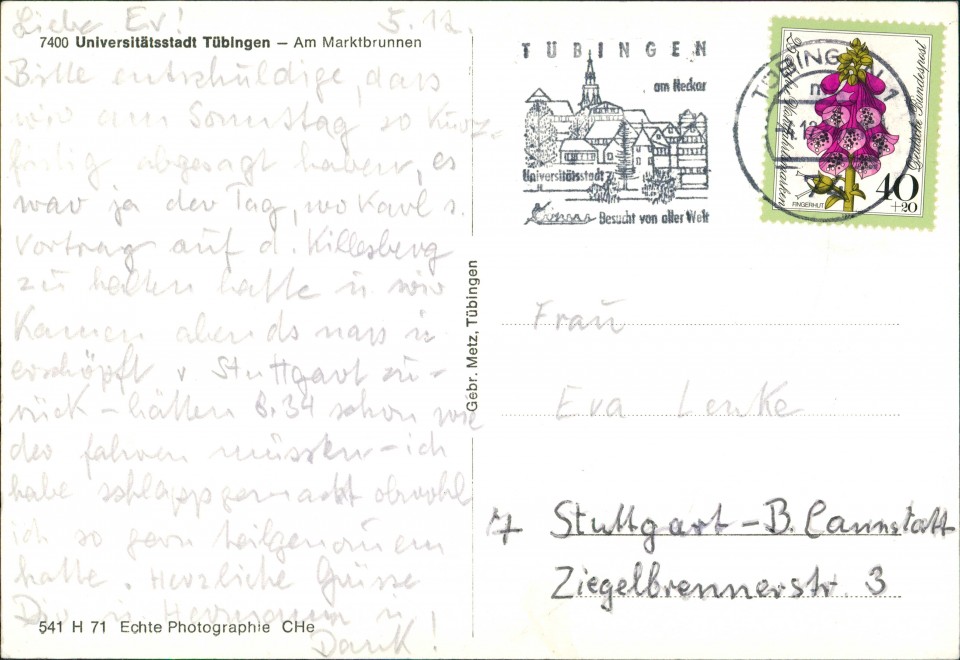 Liebe Ev! 5.12.
7400 Universitätsstadt Tübingen – Am Marktbrunnen
Bitte entschuldige, dass
wir am Sonnstag so kurz-
fristig abgesagt haben, es
war ja der Tag, wo Karl s.
Vortrag auf d. Killesberg
zu halten hatte u wir
kamen abends nass u
erschöpft v Stuttgart zu-
rück – hätten 8.34 schon wie
der fahren müssen – ich
habe schlappgemacht obwohl
ich so gern teilgenommen
hatte. Herzliche Grüsse
Dir u Hermann u
Dank!
541 H 71 Echte Photographie CHe
Gebr. Metz, Tübingen
TÜBINGEN
am Neckar
Universitätsstadt
Besucht von aller Welt
TÜBINGEN 1
Deutsche Bundespost
FINGERHUT
40
+20
Frau
Eva Lenke
7 Stuttgart – B. Cannstatt
Ziegelbrennerstr. 3